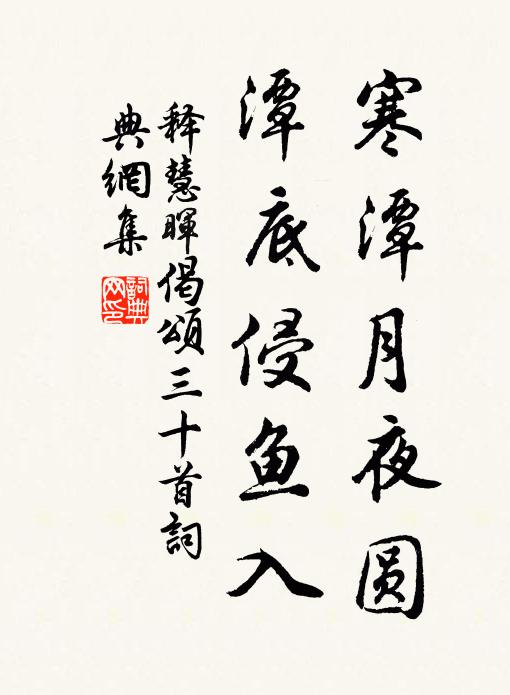 寒潭月夜圆
潭底侵鱼入
释慧暉偈頌三十首詞
典網集
詞典网印